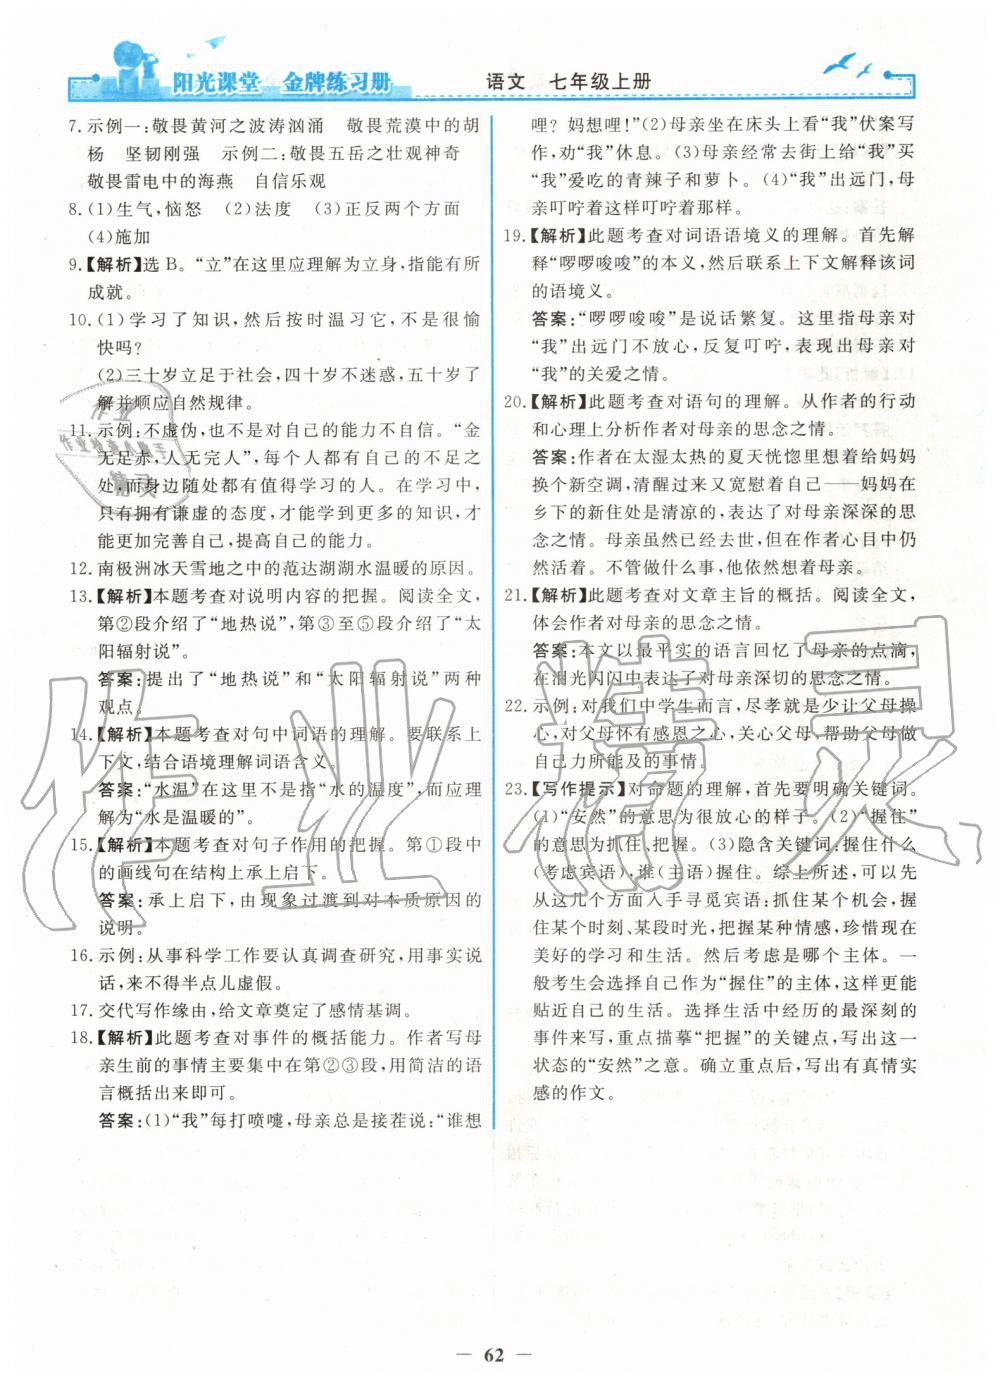 阳光课堂 金牌练习册
语文 七年级上册
7. 示例一:敬畏黄河之波涛汹涌 敬畏荒漠中的胡
杨 坚韧刚强 示例二:敬畏五岳之壮观神奇
敬畏雷电中的海燕 自信乐观
8. (1)生气,恼怒 (2)法度 (3)正反两个方面
(4)施加
9.【解析】选 B。“立”在这里应理解为立身,指能有所
成就。
10. (1)学习了知识,然后按时温习它,不是很愉
快吗?
(2)三十岁立足于社会,四十岁不迷惑,五十岁了
解并顺应自然规律。
11. 示例:不虚伪,也不是对自己的能力不自信。“金
无足赤,人无完人”,每个人都有自己的不足之
处,而身边随处都有值得学习的人。在学习中,
只有拥有谦虚的态度,才能学到更多的知识,才
能更加完善自己,提高自己的能力。
12. 南极洲冰天雪地之中的范达湖湖水温暖的原因。
13.【解析】本题考查对说明内容的把握。阅读全文,
第②段介绍了“地热说”,第③至⑤段介绍了“太
阳辐射说”。
答案:提出了“地热说”和“太阳辐射说”两种
观点。
14.【解析】本题考查对句中词语的理解。要联系上
下文,结合语境理解词语含义。
答案:“水温”在这里不是指“水的温度”,而应理
解为“水是温暖的”。
15.【解析】本题考查对句子作用的把握。第①段中
的画线句在结构上承上启下。
答案:承上启下,由现象过渡到对本质原因的
说明。
16. 示例:从事科学工作要认真调查研究,用事实说
话,来不得半点儿虚假。
17. 交代写作缘由,给文章奠定了感情基调。
18.【解析】此题考查对事件的概括能力。作者写母
亲生前的事情主要集中在第②③段,用简洁的语
言概括出来即可。
答案:(1)“我”每打喷嚏,母亲总是接茬说:“谁想
哩? 妈想哩!”(2)母亲坐在床头上看“我”伏案写
作,劝“我”休息。(3)母亲经常去街上给“我”买
“我”爱吃的青辣子和萝卜。(4)“我”出远门,母
亲叮咛着这样叮咛着那样。
19.【解析】此题考查对词语语境义的理解。首先解
释“啰啰唆唆”的本义,然后联系上下文解释该词
的语境义。
答案:“啰啰唆唆”是说话繁复。这里指母亲对
“我”出远门不放心,反复叮咛,表现出母亲对
“我”的关爱之情。
20.【解析】此题考查对语句的理解。从作者的行动
和心理上分析作者对母亲的思念之情。
答案:作者在太湿太热的夏天恍惚里想着给妈妈
换个新空调,清醒过来又宽慰着自己——妈妈在
乡下的新住处是清凉的,表达了对母亲深深的思
念之情。母亲虽然已经去世,但在作者心目中仍
然活着。不管做什么事,他依然想着母亲。
21.【解析】此题考查对文章主旨的概括。阅读全文,
体会作者对母亲的思念之情。
答案:本文以最平实的语言回忆了母亲的点滴,
在泪光闪闪中表达了对母亲深切的思念之情。
22. 示例:对我们中学生而言,尽孝就是少让父母操
心,对父母怀有感恩之心,关心父母,帮助父母做
自己力所能及的事情。
23.【写作提示】对命题的理解,首先要明确关键词。
(1)“安然”的意思为很放心的样子。(2)“握住”
的意思为抓住、把握。(3)隐含关键词:握住什么
(考虑宾语);谁(主语)握住。综上所述,可以先
从这几个方面入手寻觅宾语:抓住某个机会,握
住某个时刻、某段时光,把握某种情感,珍惜现在
美好的学习和生活。然后考虑哪个主体。一
般考生会选择自己作为“握住”的主体,这样更能
贴近自己的生活。选择生活中经历的最深刻的
事件来写,重点描摹“把握”的关键点,写出这一
状态的“安然”之意。确立重点后,写出有真情实
感的作文。
作业
作业检查小助手
精灵
作业精灵
— 62 —